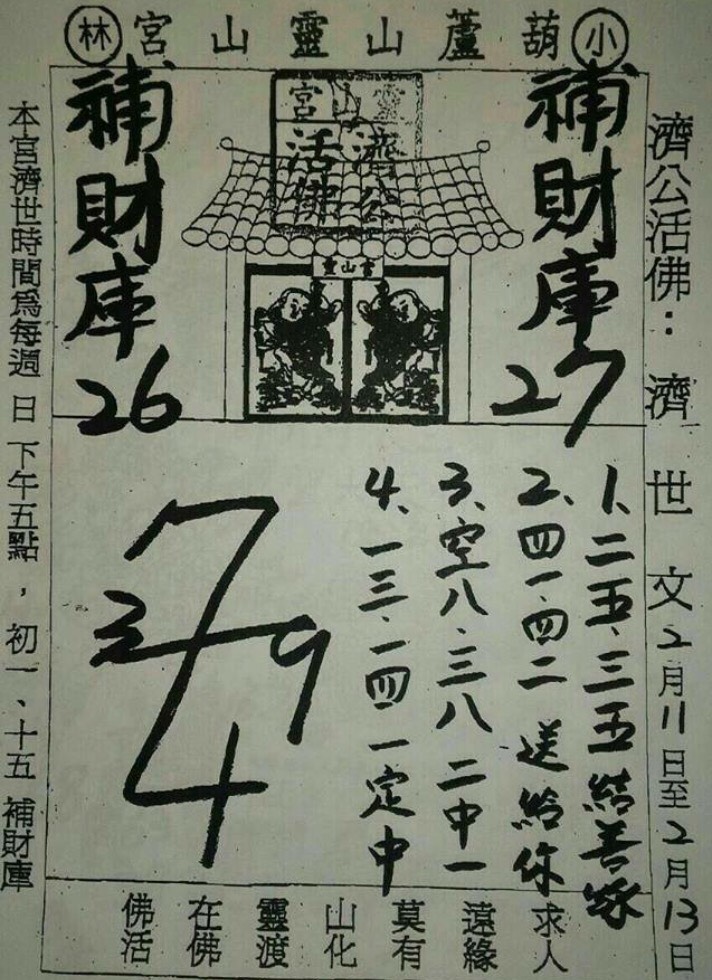 小葫蘆山靈山宮林
濟公活佛：濟世文2月11日至2月13日
補財庫27
靈山宮
濟公
活佛
靈山宮
補財庫26
1、二五.三五結善緣
2、四一.四二送給你
3、空八.三八二中一
4、一三.一四一定中
7
3 9
4
佛在靈山莫遠求
活佛渡化有緣人
本宮濟世時間爲每週日下午五點，初一、十五補財庫